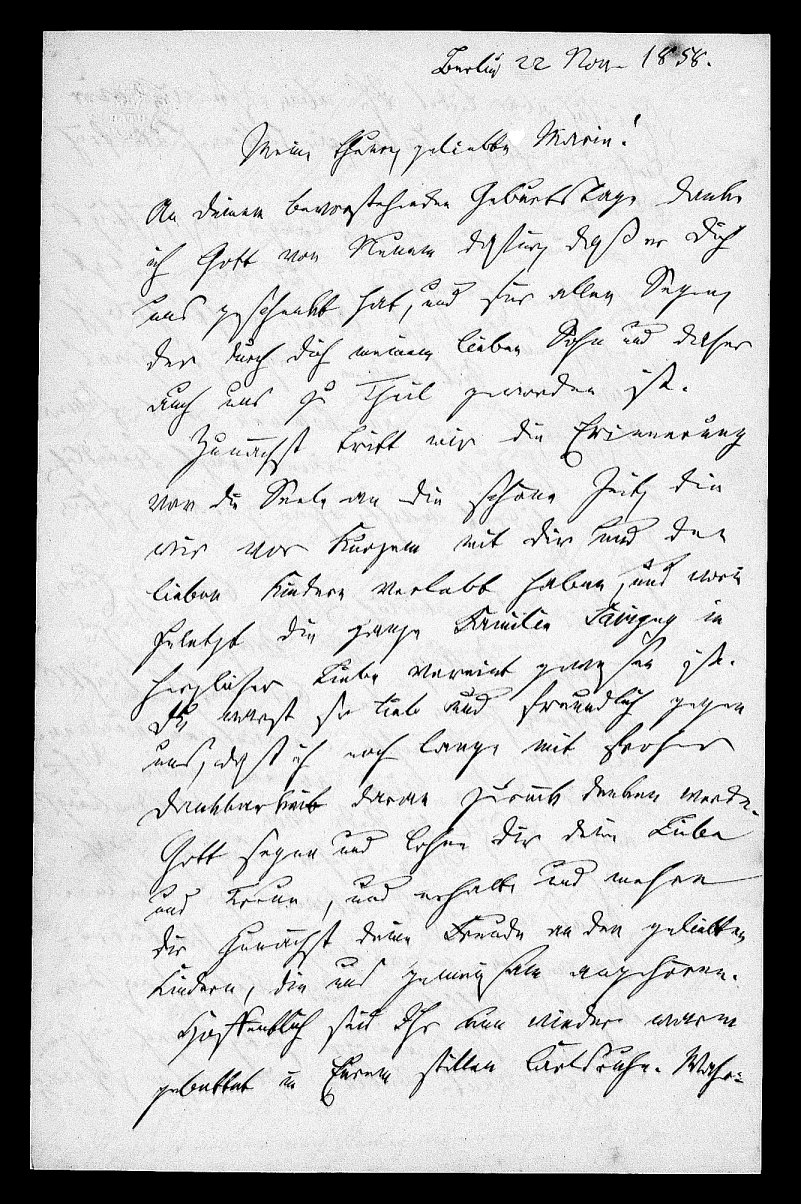 Berlin 22 Nov. 1858.
Meine theure, geliebte Marie!
An deinem bevorstehenden Geburtstage danke
ich Gott von Neuem dafür, daß er dich
uns geschenkt hat, und für allen Segen,
der durch dich meinem lieben Sohn und daher
auch uns zu Theil geworden ist.
Zunächst tritt mir die Erinnerung
vor die Seele an die schöne Zeit, die
wir vor Kurzem mit dir und den
lieben Kindern verlebt haben, und worin
zuletzt die ganze Familie Savigny in
herzlicher Liebe vereint gewesen ist.
Du warst so lieb und freundlich gegen
uns, daß ich noch lange mit froher
Dankbarkeit daran zurück denken werde.
Gott segne und lohne dir deine Liebe
und Treue, und erhalte und mehre
dir zunächst deine Freude an den geliebten
Kindern, die uns gemeinsam angehören.
Hoffentlich seid Ihr nun wieder warm
gebettet in Eurem stillen Carlsruhe. Wahr-